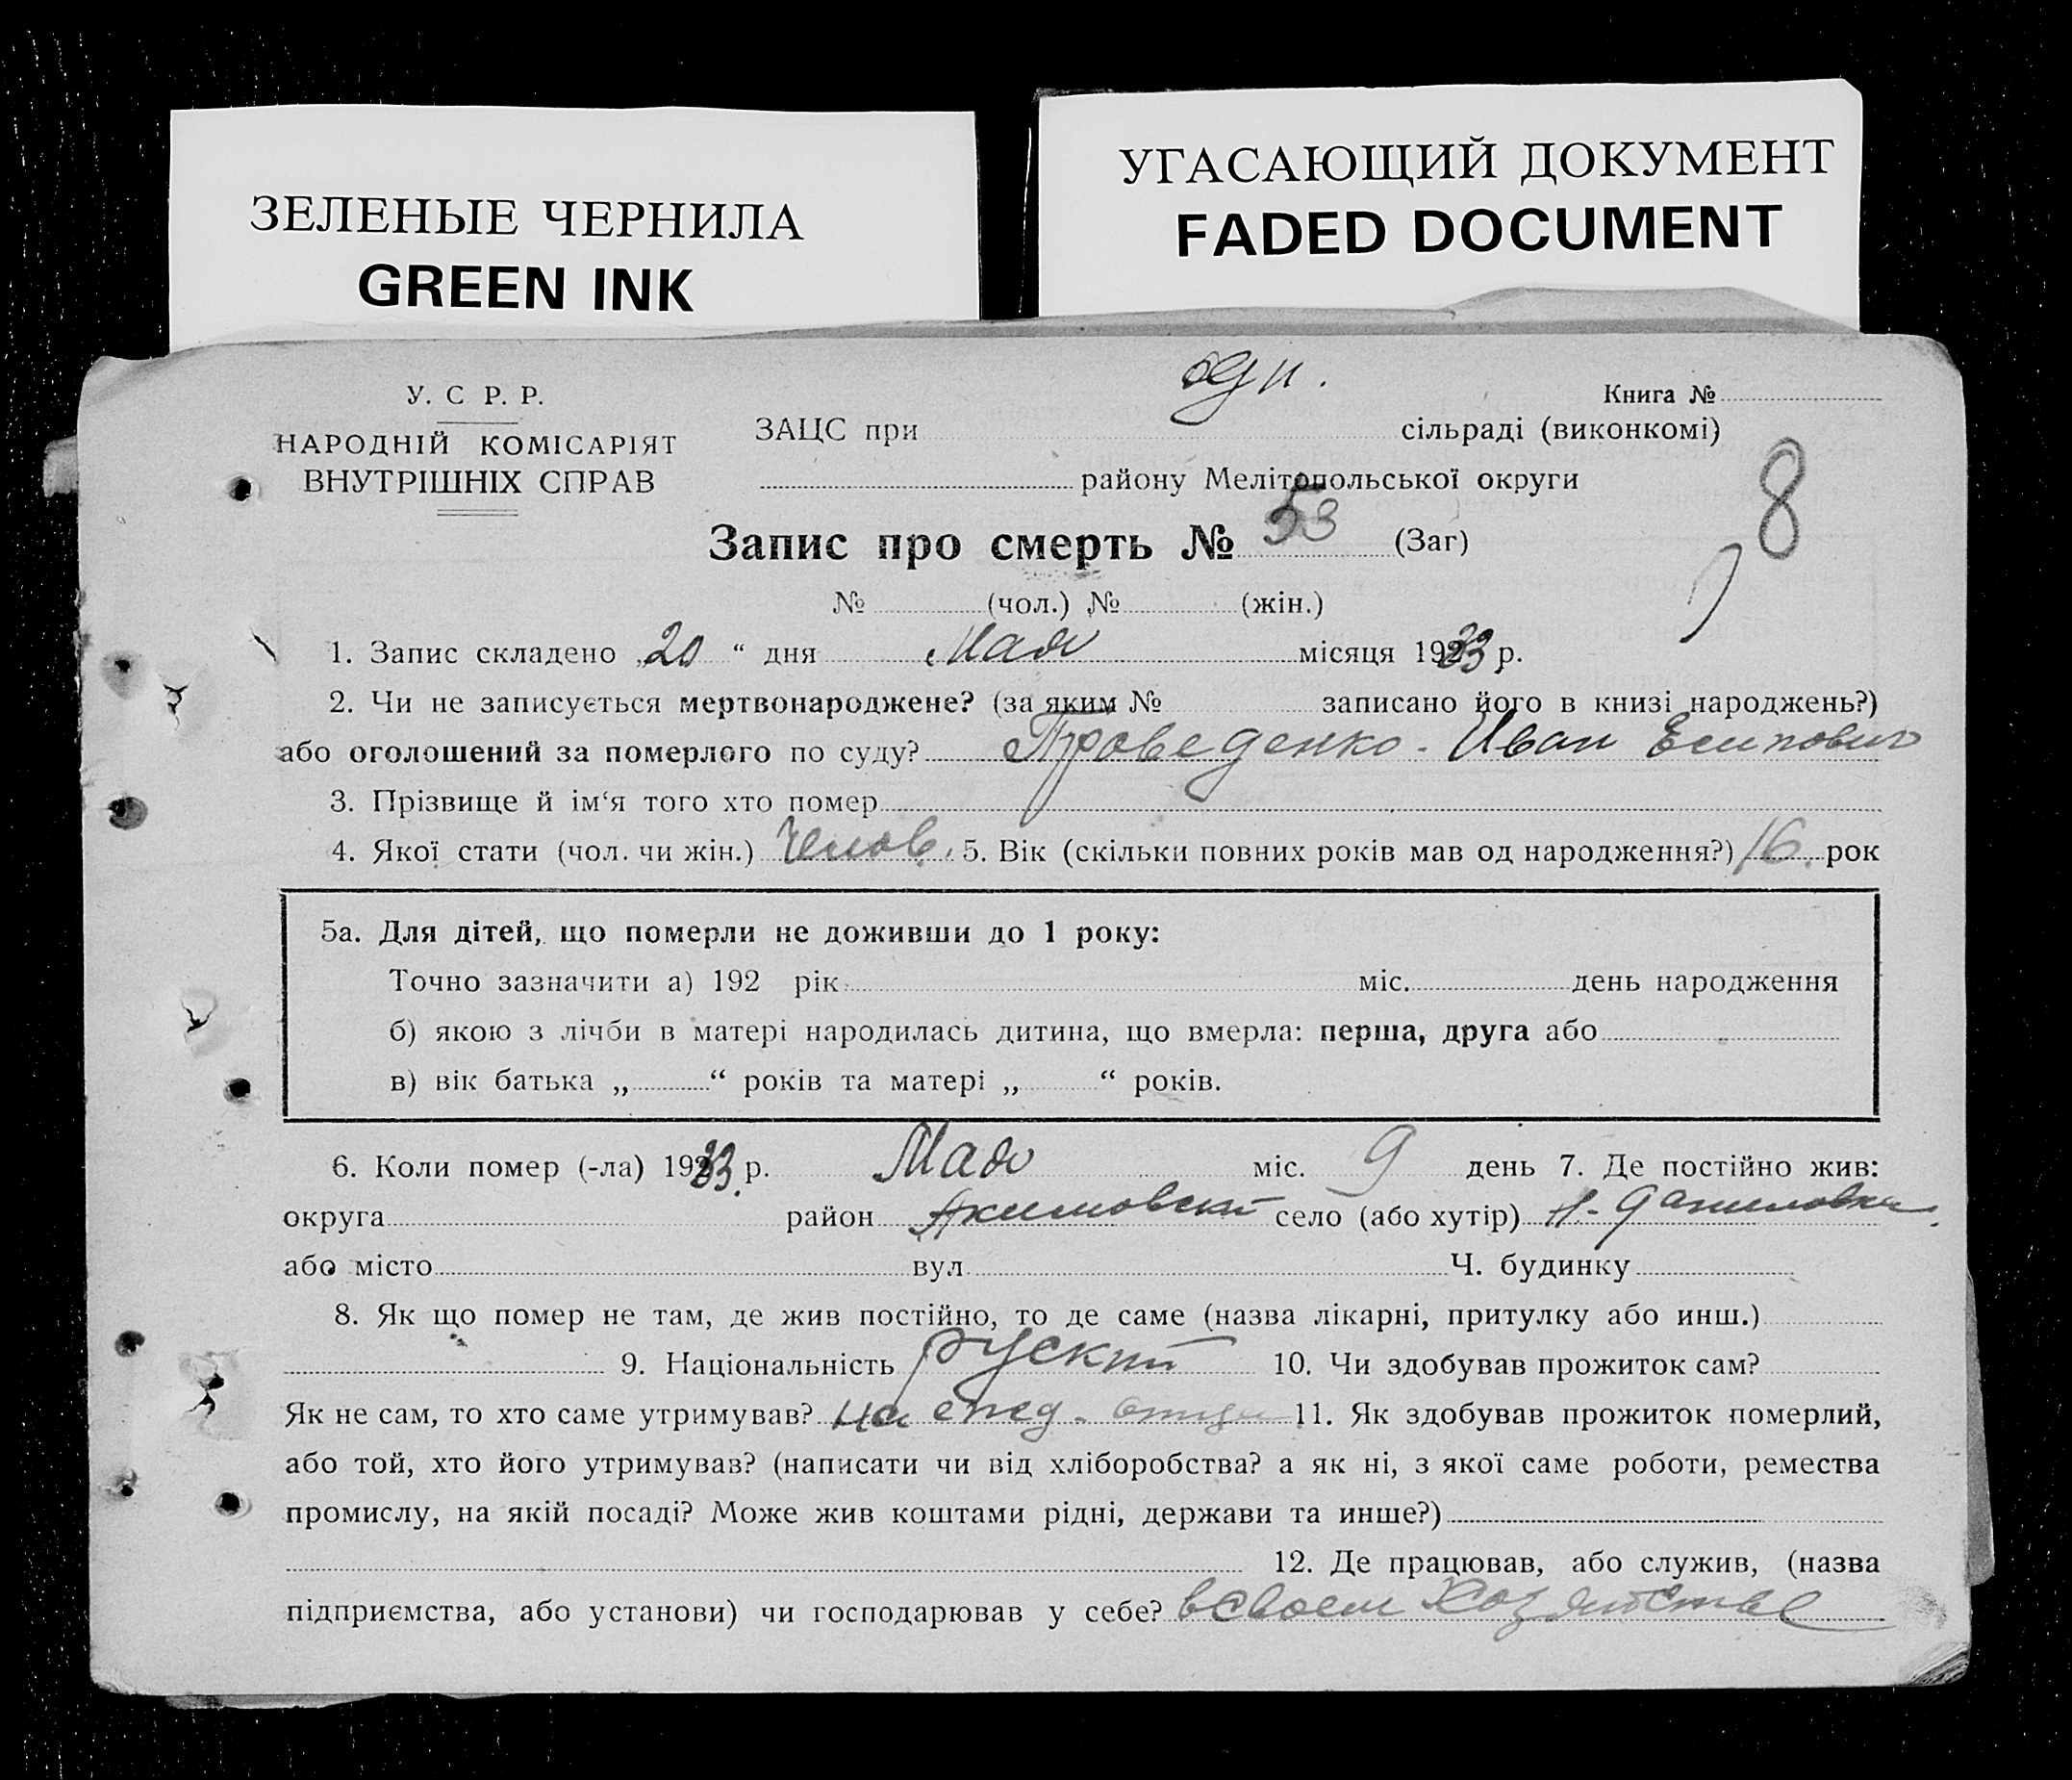 ЗЕЛЕНЫЕ ЧЕРНИЛА
GREEN INK
УГАСАЮЩИЙ ДОКУМЕНТ
FADED DOCUMENT
У. С Р. Р.
НАРОДНІЙ КОМІСАРІЯТ
ВНУТРІШНІХ СПРАВ
Книга №
ЗАЦС при сільраді (виконкомі)
району Мелітопольської округи
8
Запис про смерть № 53 (Заг)
№ (чол.) № (жін.)
1. Запис складено „20 “ дня Мая місяця 1933 р.
2. Чи не записується мертвонароджене? (за яким № записано його в книзі народжень?)
або оголошений за померлого по суду? Проведенко - Иван Есипович
3. Прізвище й ім‘я того хто помер
4. Якої стати (чол. чи жін.) Челов. 5. Вік (скільки повних років мав од народження?) 16 рок
5а. Для дітей, що померли не доживши до 1 року:
Точно зазначити а) 192 рік міс. день народження
б) якою з лічби в матері народилась дитина, що вмерла: перша, друга або
в) вік батька „ “ років та матері „ “ років.
6. Коли помер (-ла) 1933 р. Мая міс. 9 день 7. Де постійно жив:
округа район Акимовский село (або хутір) Н-Даниловка
або місто вул Ч. будинку
8. Як що помер не там, де жив постійно, то де саме (назва лікарні, притулку або инш.)
9. Національність руский 10. Чи здобував прожиток сам?
Як не сам, то хто саме утримував? на сред. отца 11. Як здобував прожиток померлий,
або той, хто його утримував? (написати чи від хліборобства? а як ні, з якої саме роботи, ремества
промислу, на якій посаді? Може жив коштами рідні, держави та инше?)
12. Де працював, або служив, (назва
підприємства, або установи) чи господарював у себе? в своем хозяйстве